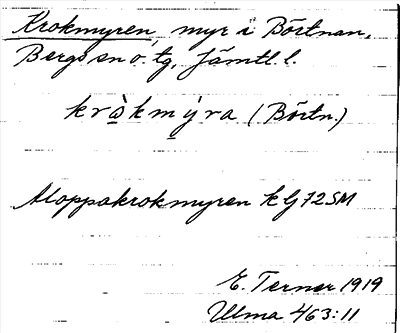 Krokmyren, myr i Börtnan,
Bergs sn o. tg, Jämtl. l.
kròkmýra (Börtn.)
Moppakrokmyren kG 72SM
E. Terner 1919
Ulma 463:11